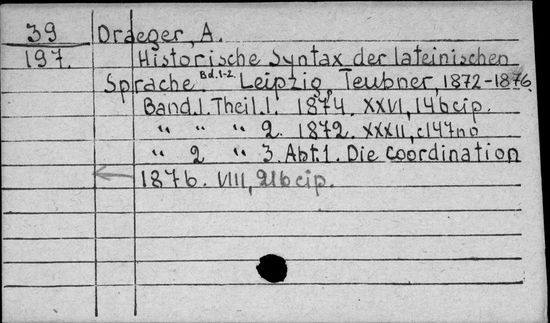 39 Draeger, A.
197. Historische Syntax der lateinischen
Sprache Bd.1-2. Leipzig, Teubner, 1872-1876.
Band.I. Theil.I. 1874. XXVI, 146 стр.
" " " 2. 1872. XXXII, с147по
" 2 " 3. Abt.1. Die Coordination
1876. VIII, 216 стр.